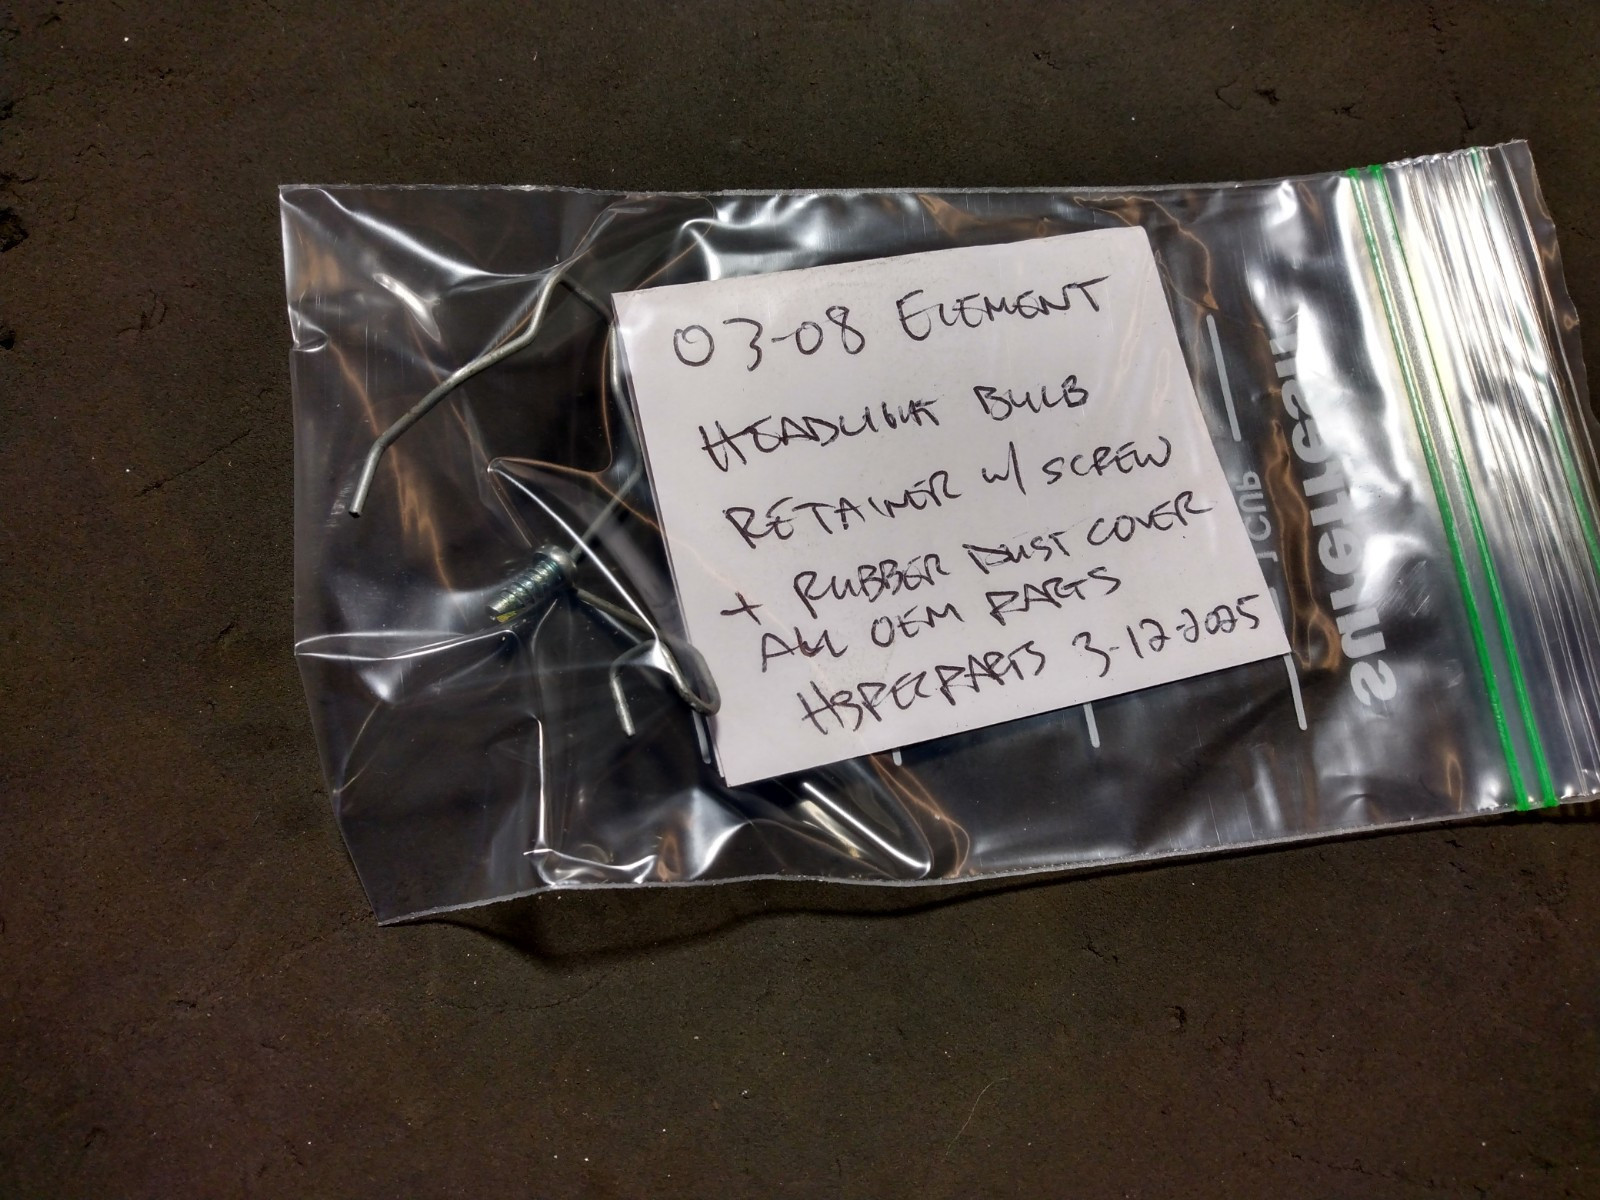 03-08 ELEMENT
HEADLIGHT BULB
RETAINER W/ SCREW
+ RUBBER DUST COVER
ALL OEM PARTS
HYPERPARTS 3-12-2025
1 CUP
surefresh